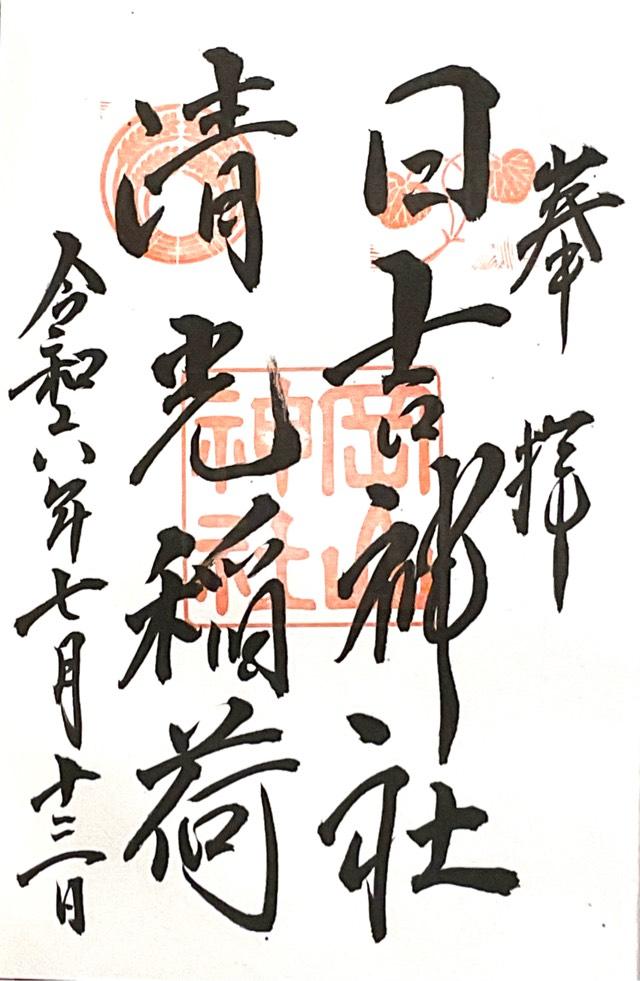 奉拝
日吉神社
清光稲荷
令和六年七月十三日
岡山
神社